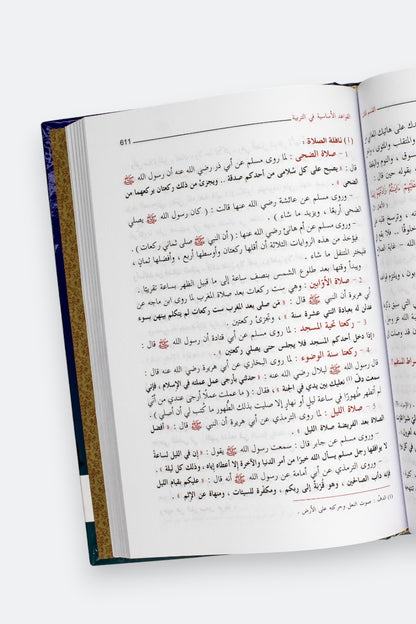 القواعد الأساسية في التربية
611
(١) نافلة الصلاة :
١ – صلاة الضحى : لما روى مسلم عن أبي ذر رضي الله عنه أن رسول الله ﷺ
قال : « يصبح على كل سُلامى من أحدكم صدقة .. ويجزئ من ذلك ركعتان يركعهما من
الضحى » .
– وروى مسلم عن عائشة رضي الله عنها قالت : ( كان رسول الله ﷺ يصلي
الضحى أربعًا ، ويزيد ما شاء ) .
– وروى مسلم عن أم هانئ رضي الله عنها : ( أن النبي ﷺ صلى ثماني ركعات ) .
فيؤخذ من هذه الروايات الثلاثة أن أقلها ركعتان وأوسطها أربع ، وأفضلها ثمانٍ ،
فيختر المتنفل ما شاء .
ويبدأ وقتها بعد طلوع الشمس بنصف ساعة إلى ما قبيل الظهر بساعة تقريبًا .
٢ – صلاة الأوّابين : وهي ست ركعات بعد صلاة المغرب لما روى ابن ماجه عن
أبي هريرة أن النبي ﷺ قال : « من صلى بعد المغرب ست ركعات لم يتكلم بينهن بسوء
عدلن له بعبادة اثنتي عشرة سنة » ، وتُجزئ ركعتين .
٣ – ركعتا تحية المسجد : لما روى مسلم عن أبي قتادة أن رسول الله ﷺ قال :
« إذا دخل أحدكم المسجد فلا يجلس حتى يصلي ركعتين » .
٤ – ركعتا سنة الوضوء : لما روى البخاري عن أبي هريرة رضي الله عنه قال : قال
رسول الله ﷺ لبلال رضي الله عنه : « حدثني بأرجى عمل عملته في الإسلام ، فإني
سمعت دفّ (١) نعليك بين يدي في الجنة » ، فقال : ( ما عملت عملًا أرجى عندي من أني
لم أتطهر طُهورًا في ساعة ليل أو نهار إلا صليت بذلك الطُّهور ما كُتب لي أن أصلي ) .
٥ – صلاة الليل : لما روى الترمذي عن أبي هريرة أن النبي ﷺ قال : « أفضل
الصلاة بعد الفريضة صلاة الليل » .
– وروى مسلم عن جابر قال : سمعت رسول الله ﷺ يقول : « إن في الليل لساعة
لا يوافقها رجل مسلم يسأل الله خيرًا من أمر الدنيا والآخرة إلا أعطاه إياه ، وذلك كل ليلة » .
– وروى الترمذي عن أبي أمامة عن رسول الله ﷺ أنه قال : « عليكم بقيام الليل
فإنه دأب الصالحين ، وهو قُرْبَةٌ إلى ربكم ، ومكفرة للسيئات ، ومنهاة عن الإثم » .
(١) الدفّ : صوت النعل وحركته على الأرض .